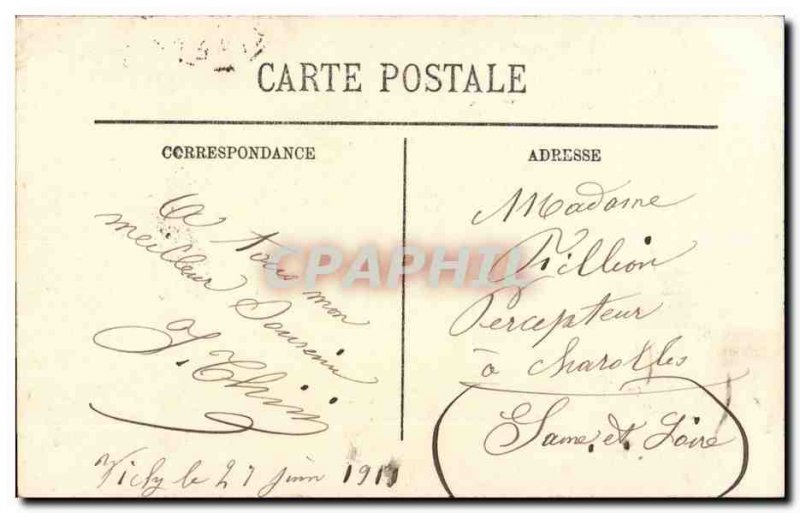 CARTE POSTALE
CORRESPONDANCE
A tous mon
meilleur Souvenir
Vichy le 27 juin 191
ADRESSE
Madame
Tillion
Percepteur
à Charolles
Saone et Loire
CPAPHIL